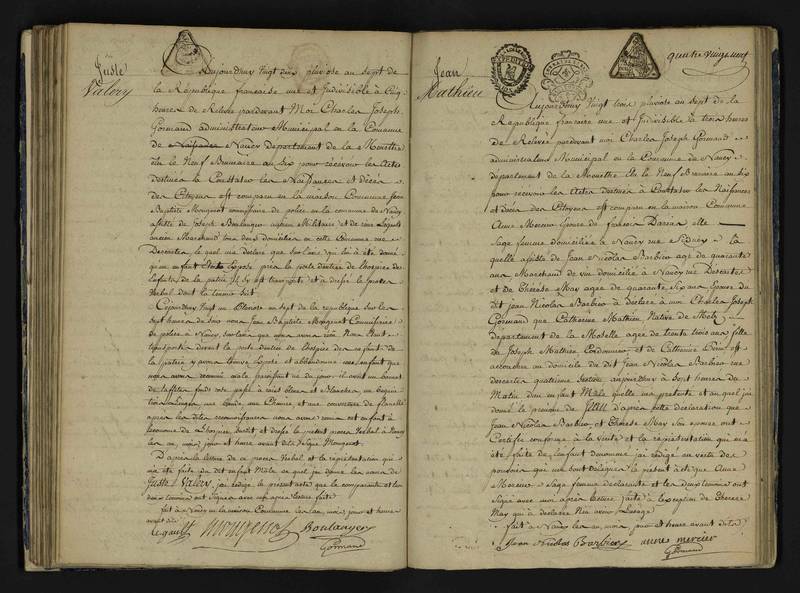 Juste
Valery
Aujourdhuy Vingt deux pluviose an sept de
la République française une et Indivisible à Cinq
heures de Relevée pardevant Moi Charles Joseph
Gormand administrateur Municipal en la Commune
de Naissances Nancy Departement de la Meurthe
élu le Neuf Brumaire an Six pour recevoir les Actes
destinés à Constater les Naissances et décès
des Citoyens est comparu en la maison Commune Jean
Baptiste Mougenot commissaire de police en la commune de Nancy
assisté de Joseph Boulanger Militaire et de
ancien Marchand tous deux domiciliés en cette Commune rue
Descartes, lequel m'a déclaré que sur l'avis qui lui a été donné
qu'un enfant était Exposé près la porte d'entrée de l'hospice des
Enfants de la patrie il s'y est transporté et a dressé le procès
Verbal dont la teneur suit
Cejourdhuy Vingt un Pluviose an sept de la république sur les
sept heures du soir nous Jean Baptiste Mougenot Commissaire
de police à Nancy, sur l'avis que nous avons reçu Nous étant
transporté devant la porte d'entrée de l'hospice des enfants de
la patrie y avons trouvé Exposé et abandonné un enfant que
nous avons reconnu mâle paraissant né du jour, il avait un bonnet
de taffetas fond rose rayé à raies bleues et Blanches, un béguin
une Chemise et une couverture de flanelle
après les dites reconnaissances nous avons remis cet enfant à
l'économe de l'hospice susdit et dressé le présent procès Verbal à Nancy
les an, mois, jour et heure avant dits Signé Mougenot.
D'après la lecture de ce procès Verbal et la représentation qui
m'a été faite du dit enfant Mâle au quel j'ai donné les noms de
Juste Valery, j'ai rédigé le présent acte que le comparant et les
deux témoins ont Signés avec moi après lecture faite
fait à Nancy en la maison Commune les an, mois, jour et heure
avant dits
Legault Mougenot Boulanger
Gormand
quatre vingt neuf
Jean
Mathieu
Aujourdhuy Vingt trois pluviose an sept de la
République française une et Indivisible à trois heures
de Relevée pardevant moi Charles Joseph Gormand
administrateur Municipal en la Commune de Nancy
département de la Meurthe élu le Neuf Brumaire an Six
pour recevoir les Actes destinés à Constater les Naissances
et décès des Citoyens est comparu en la maison Commune
Anne Mercier Epouse de françois elle
Sage femme domiciliée à Nancy rue la
quelle assistée de Jean Nicolas Barbier agé de quarante
ans Marchand de vin domicilié à Nancy rue Descartes
et de Thérèse May agée de quarante Six ans Epouse du
dit Jean Nicolas Barbier a déclaré à moi Charles Joseph
Gormand que Catherine Mathieu Native de Metz
département de la Moselle agée de trente trois ans fille
de Joseph Mathieu Cordonnier et de Catherine est
accouchée au domicile du dit Jean Nicolas Barbier rue
descartes quatrieme Section aujourdhuy à Sept heures du
Matin d'un enfant Mâle qu'elle me présente et au quel j'ai
donné le prénom de JEAN d'après cette déclaration que
Jean Nicolas Barbier et Thérèse May son épouse ont
Certifiée conforme à la vérité et la représentation qui m'a
été faite de l'enfant dénommé j'ai rédigé en vertu des
pouvoirs qui me sont délégués le présent acte que Anne
Mercier Sage femme déclarante et les deux témoins ont
Signé avec moi après lecture faite à l'exception de Thérèse
May qui a déclaré N'en avoir l'usage
fait à Nancy les an, mois, jour et heure avant dits
Jean Nicolas Barbier anne mercier
Gormand